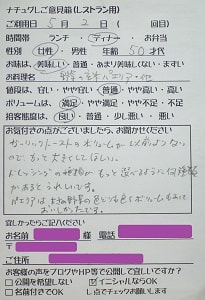 ナチュクしご意見箱(レストラン用)
ご利用日 5月 2日 ( 回目)
時間帯 ランチ ・ ディナー ・ お弁当
性別 女性 男性 年齢 50 才代
お味は 美味しい・普通・あまり美味しくない・まずい
お料理名
値段は 安い・やや安い・普通・やや高い・高い
ボリュームは 満足・やや満足・普通・やや不足・不足
接客態度は 良い・普通・少し悪い・悪い
お気付きの点がございましたら、お聞かせください
ガーリックトーストのボリュームが以前よりない
ので、もっと大きくしてほしい。
ドレッシングの種類がもっと選べるように何種類
かあるとうれしいです。
おいしかったです。
宜しかったらご記入ください
お名前 様 電話
〒
ご住所
お客様の声をブログやHP等で公開して宜しいですか?
□公開を希望しない イニシャルならOK
□名前付きでOK レ点でチェックお願いします